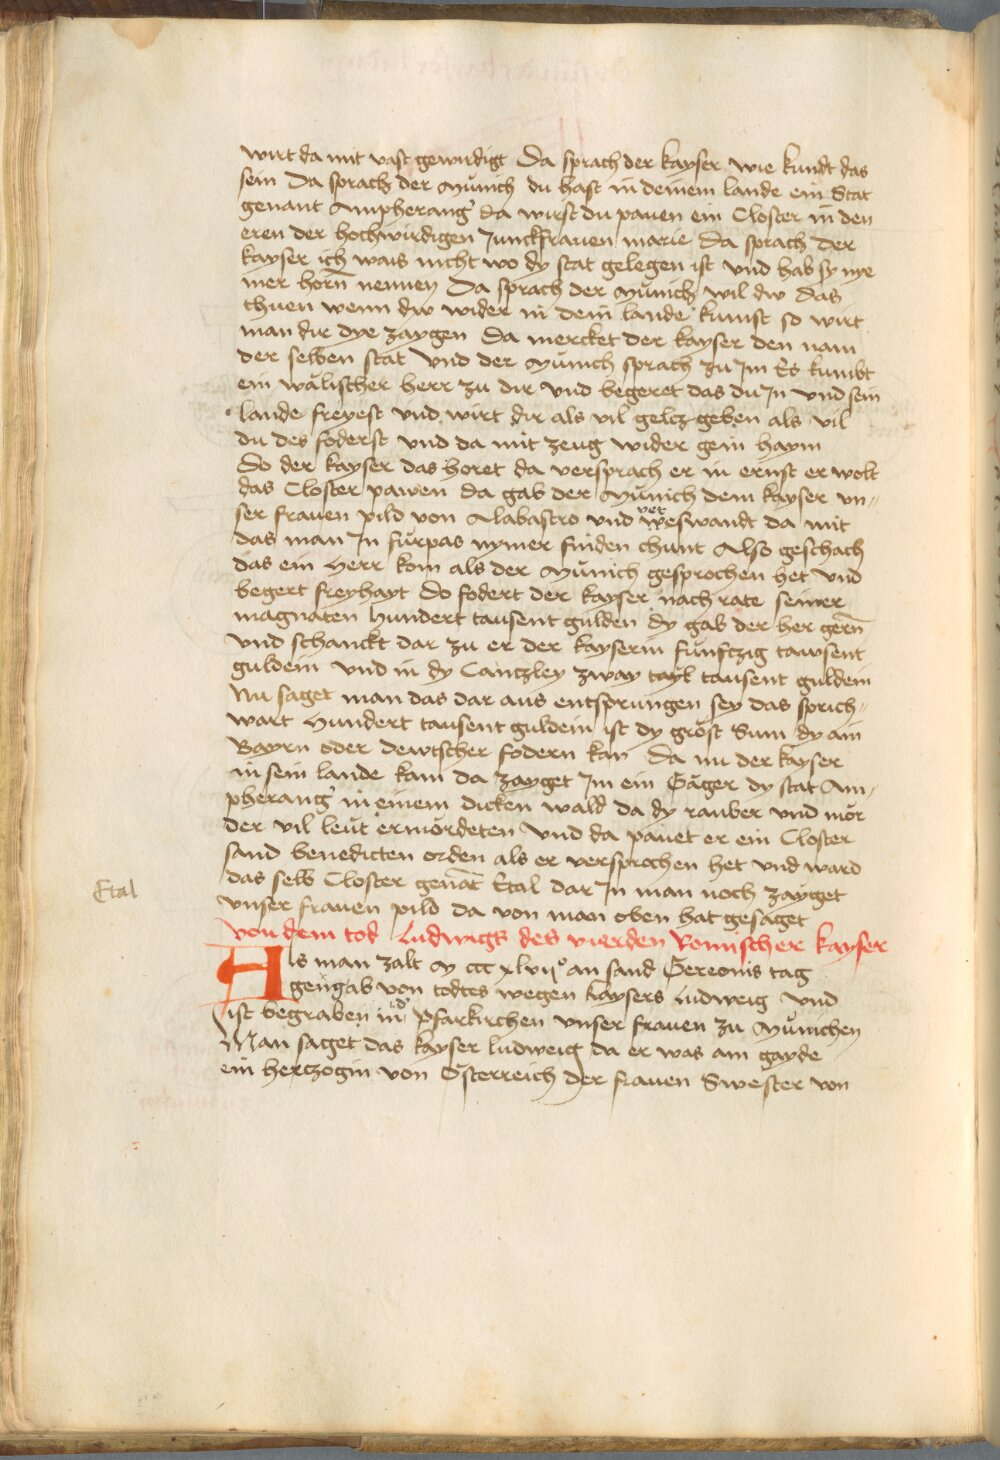 wirt da mit vast gewirdigt Da sprach der kayser wie kundt das
sein Da sprach der Münich du hast in deinem lande ein Stat
genant Ampherang da wirst du pauen ein Closter in den
eren der hochwirdigen Junckfrauen marie Da sprach der
kayser ich wais nicht wo dy stat gelegen ist vnd hab sy nye
mer horn nennen Da sprach der Münich wil dw das
thuen wenn dw wider in dein lande kumst so wirt
man dir dye zaygen Da mercket der kayser den nam
der selben stat Vnd der Münich sprach zu Im Es kumbt
ein wälischer herr zu dir vnd begeret das du In vnd sein
lande freyest vnd wirt dir als vil geltz geben als vil
du des foderst vnd da mit zeug wider gein haym
Do der kayser das horet da versprach er in ernst er wolt
das Closter pawen da gab der Münich dem kayser vn-
ser frauen pild von Alabastro vnd verweswandt da mit
das man In fürpas nymer finden chunt Also geschach
das ein Herr kom als der Münich gesprochen het vnd
begert freyhayt Do fodert der kayser nach rate seiner
magnaten Hundert tausent gulden dy gab der her gern
vnd schanckt dar zu er der kayserin fünftzig tawsent
guldein vnd in dy Cantzley zway tayl tausent guldein
Nu saget man das dar aus entsprungen sey das sprich-
wart Hundert tausent guldein ist dy gröst Sum dy ain
Bayrn oder dewtscher fodern kan Da nu der kayser
in sein lande kam da zayget Im ein Gäger dy stat Am-
pherang in einem dicken wald da dy rauber vnd mör
der vil leüt ermördeten Vnd da pauet er ein Closter
sand benedicten orden als er versprochen het vnd ward
das selb Closter genat Etal dar In man noch zayget
vnser frauen pild da von man oben hat gesaget
Etal
Von dem tod Ludwigs des vierden Romischer kayser
Als man zalt M ccc xlvii° an sand Gereonis tag
gengab von todtes wegen kaysers Ludweig vnd
ist begraben in d' Pfarkirchen vnser frauen zu Münichen
Man saget das kayser ludweig da er was am gayde
ein hertzogin von Österreich der frauen Swester von